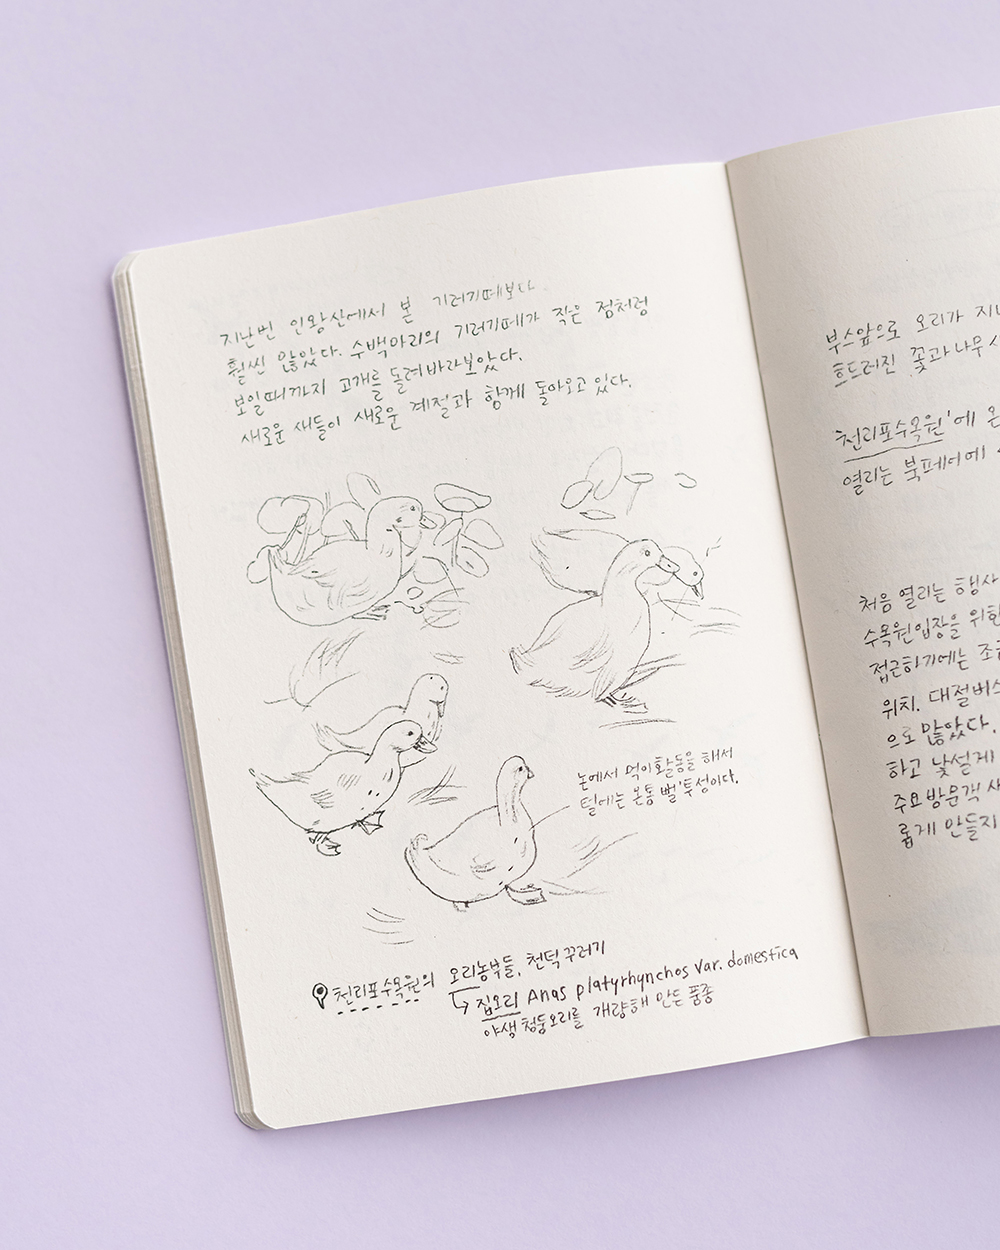 지난번 인왕산에서 본 기러기떼보다
훨씬 많았다. 수백마리의 기러기떼가 작은 점처럼
보일때까지 고개를 돌려 바라보았다.
새로운 새들이 새로운 계절과 함께 돌아오고 있다.
논에서 먹이활동을 해서
털에는 온통 뻘 투성이다.
천리포수목원의 오리농부들, 천덕꾸러기
집오리 Anas platyrhynchos var. domestica
야생 청둥오리를 개량해 만든 품종
부스앞으로 오리가 지나
흐드러진 꽃과 나무 사
천리포수목원'에 온
열리는 북페어에
처음 열리는 행사
수목원입장을 위한
접근하기에는 조금
위치. 대절버스
으로 많았다.
하고 낯설게
주요방문객
롭게 만들지